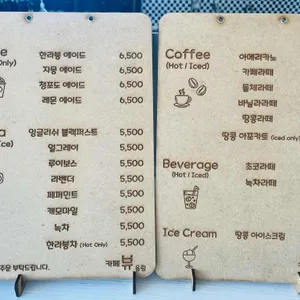 e
Only)
한라봉 에이드 6,500
자몽 에이드 6,500
청포도 에이드 6,500
레몬 에이드 6,500
a
Ice)
잉글리쉬 블랙퍼스트 5,500
얼그레이 5,500
루이보스 5,500
라벤더 5,500
페퍼민트 5,500
캐모마일 5,500
녹차 5,500
한라봉차 (Hot Only) 5,500
주문 부탁드립니다.
카페 뷰
Coffee
(Hot / Iced)
아메리카노
카페라떼
돌체라떼
바닐라라떼
땅콩라떼
땅콩 아포카토 (iced only)
Beverage
(Hot / Iced)
초코라떼
녹차라떼
Ice Cream
땅콩 아이스크림